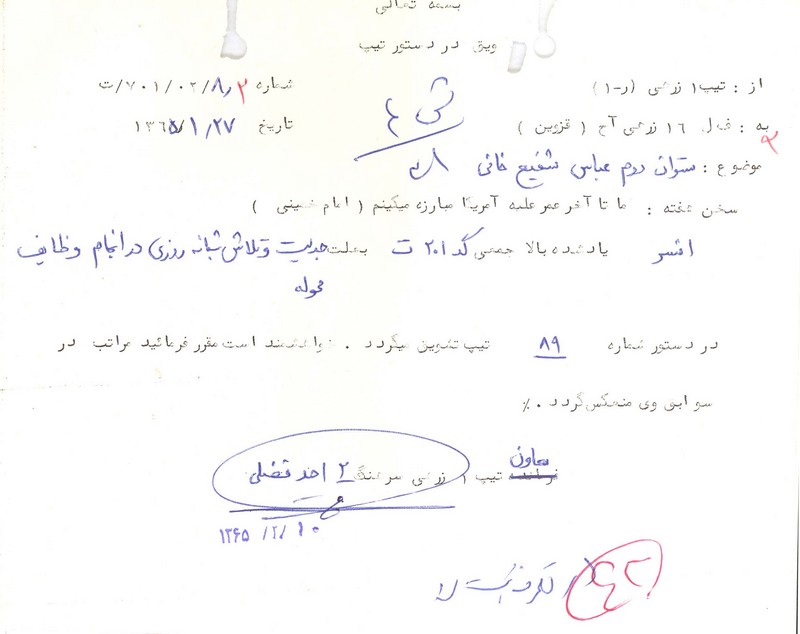 بسمه تعالی
در دستور تیپ
از : تیپ ۱ زرهی (ر-۱)
شماره ۷۰۱/۰۲/۸/۲/ت
به : گردان ۱۶ زرهی آج ( قزوین )
تاریخ ۱۳۶۵/۱/۲۷
موضوع : ستوان دوم عباس شفیع خانی
سخن هفته : ما تا آخر عمر علیه آمریکا مبارزه میکنیم ( امام خمینی )
افسر یادشده بالا جمعی گد ۲۰۱ ت بعلت جدیت و تلاش شبانه روزی در انجام وظایف
محوله
در دستور شماره ۸۹ تیپ تشویق میگردد . خواهشمند است مقرر فرمائید مراتب در
سوابق وی منعکس گردد .٪
معاون
فرمانده تیپ ۱ زرهی سرهنگ ۲ احمد فضلی
۱۳۶۵/۲/۱۰
۴۲